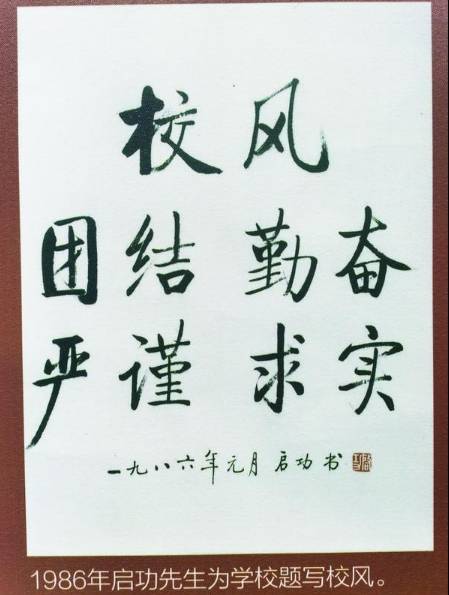 校风
团结 勤奋
严谨 求实
一九八六年元月 启功书
1986年启功先生为学校题写校风。